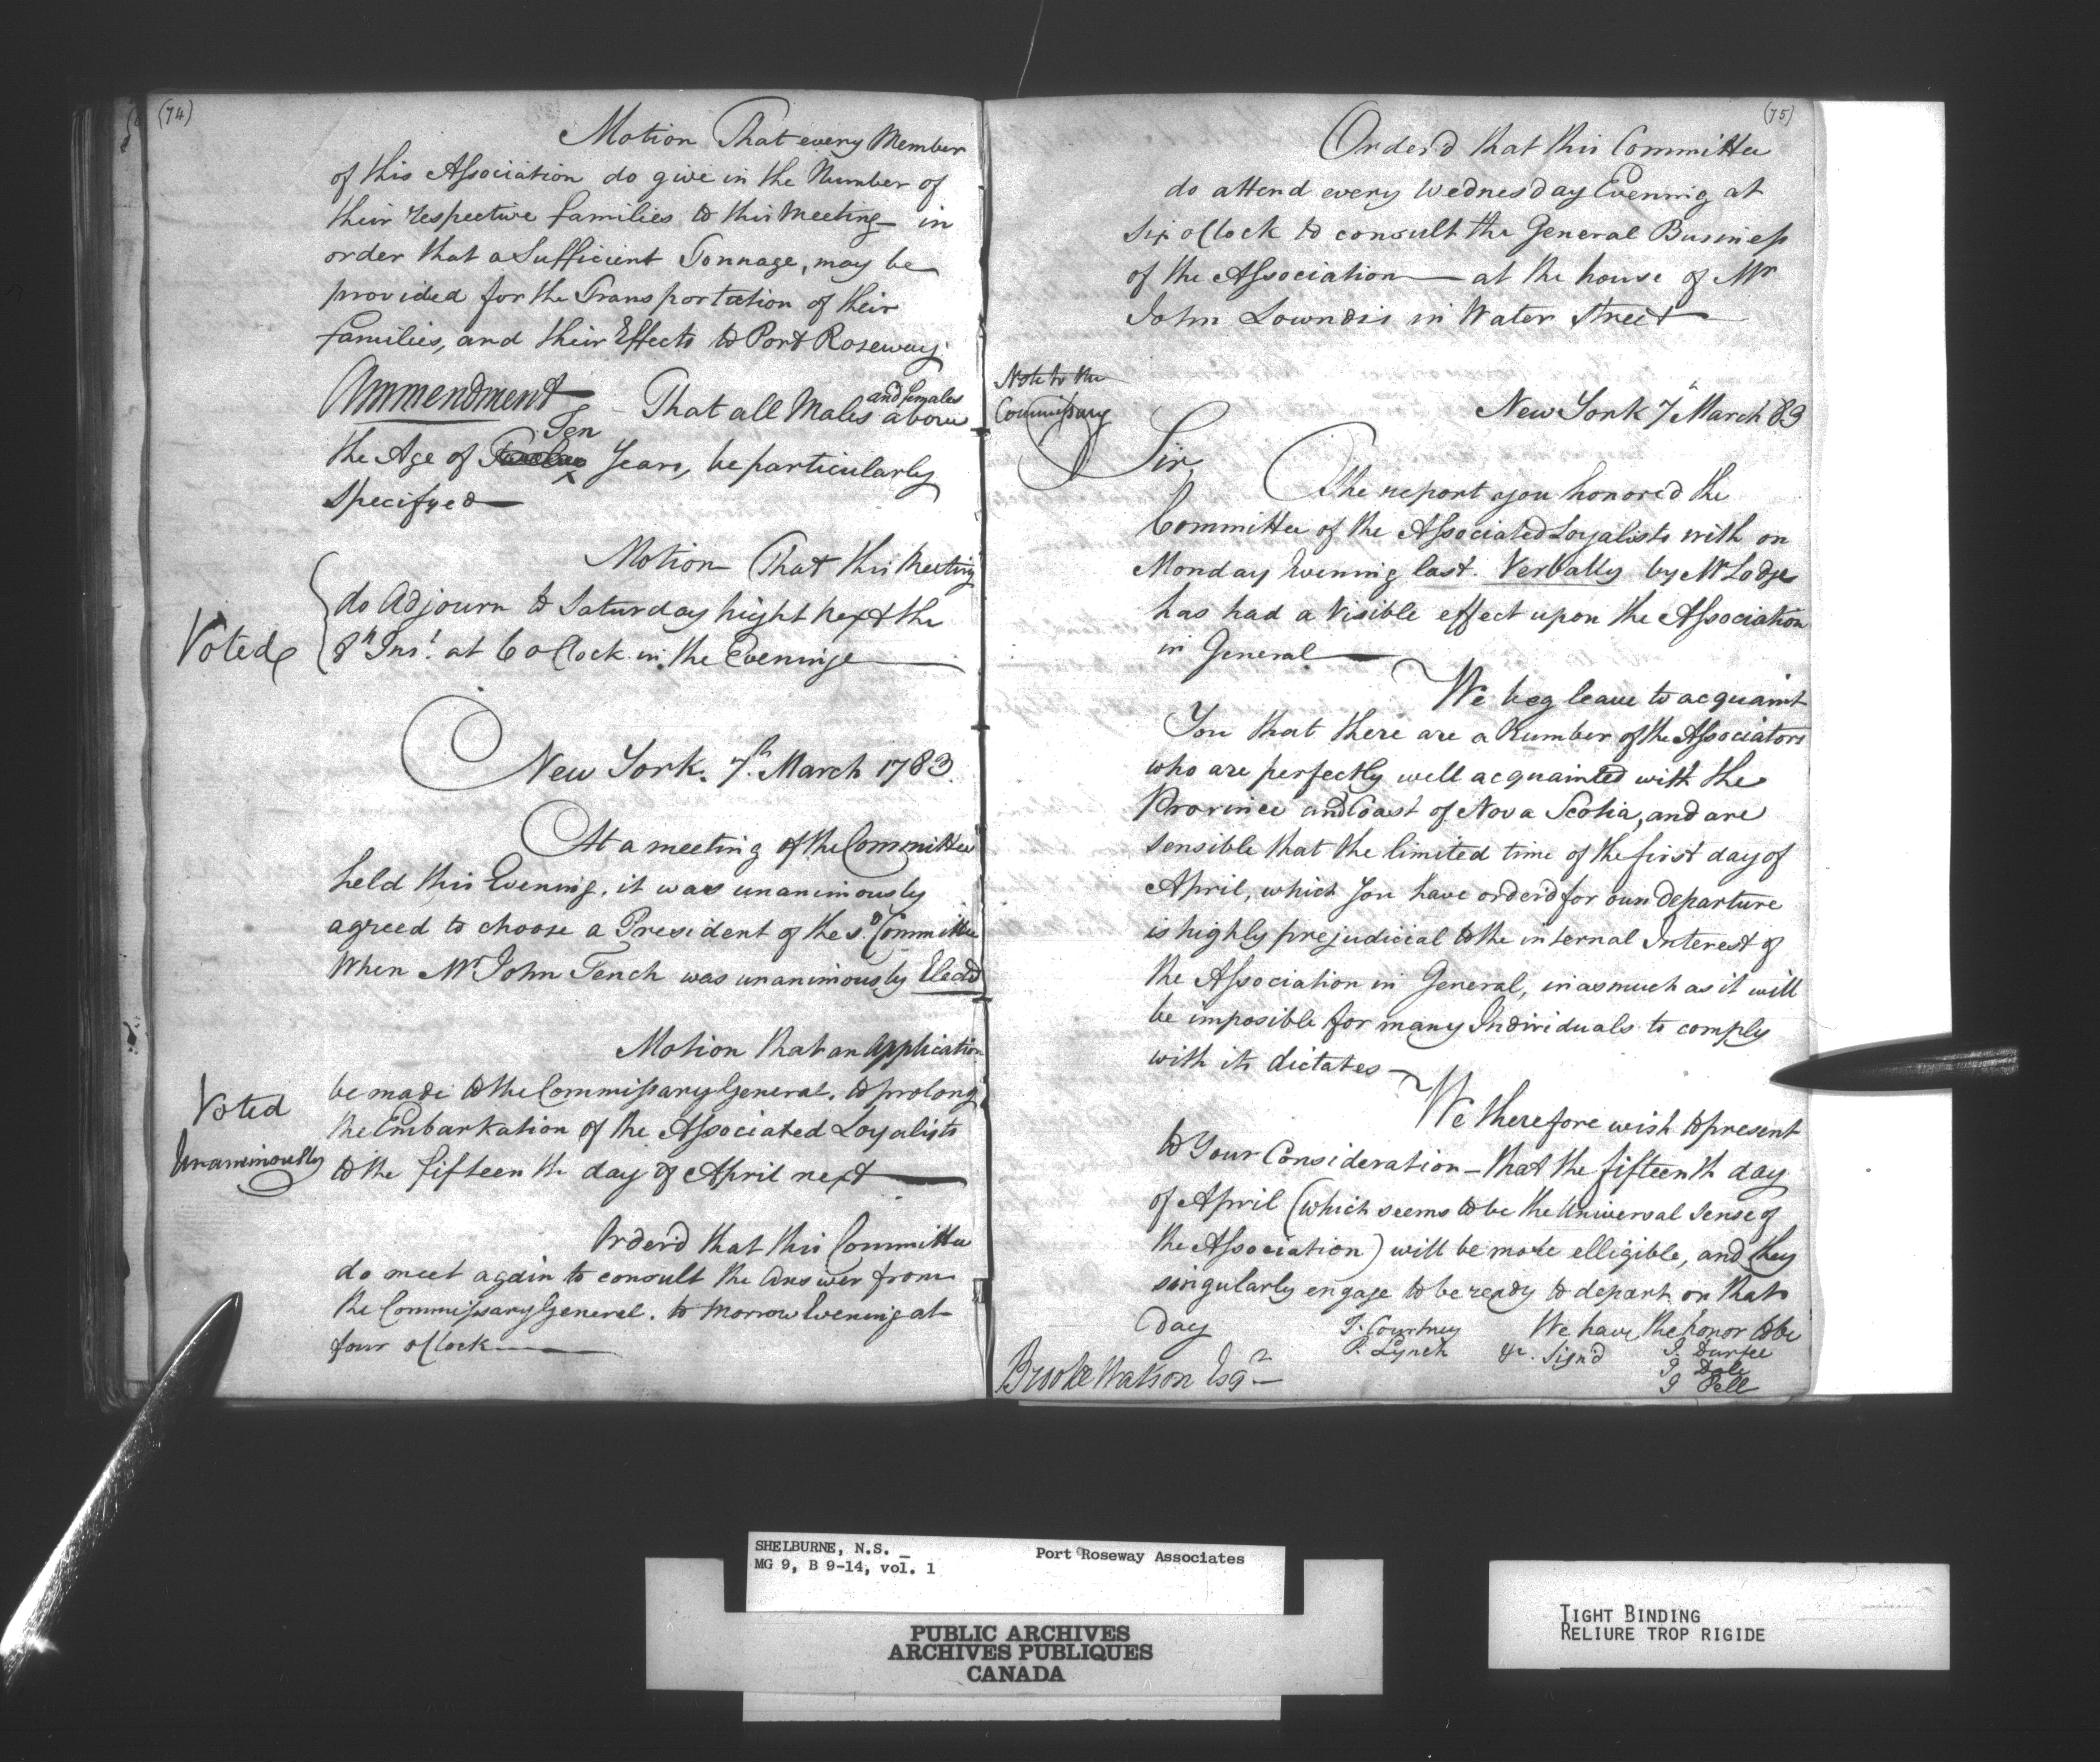 (74)
Motion That every Member
of this Association do give in the Number of
their respective families to this Meeting – in
order that a Sufficient Tonnage, may be
provided for the Transportation of their
families, and their Effects to Port Roseway.
Ammendment – That all Males and females above
the Age of Ten Years, be particularly
Specifyed
Motion That this Meeting
do Adjourn to Saturday Night Next the
8th Inst. at 6 oClock in the Evening
Voted
New York. 7th March 1783.
At a meeting of the Committee
held this Evening. it was unanimously
agreed to choose a President of the sd Committee
When Mr John Tench was unanimously Elect'd
Motion that an Application
be made to the Commissary General. to prolong
the Embarkation of the Associated Loyalists
to the fifteenth day of April next
Voted
Unanimously
Order'd that this Committee
do meet again to consult the Answer from
the Commissary General. to Morrow Evening at
four oClock
(75)
Order'd that this Committee
do attend every Wednesday Evening at
Six oClock to consult the General Business
of the Association — at the house of Mr
John Lowndis in Water Street
Note to the
Commissary
New York 7th March 83
Sir,
The report you honored the
Committee of the Associated Loyalists with on
Monday Evening last. Verbally by Mr Lodge
has had a Visible effect upon the Association
in General
We beg leave to acquaint
You that there are a Number of the Associators
who are perfectly well acquainted with the
Province and Coast of Nova Scotia, and are
sensible that the limited time of the first day of
April, which You have order'd for our departure
is highly prejudicial to the internal Interest of
the Association in General, in as much as it will
be imposible for many Individuals to comply
with its dictates –
We therefore wish to present
to Your Consideration – that the fifteenth day
of April (which seems to be the Universal Sense of
the Association) will be more elligible, and they
singularly engage to be ready to depart on that
Day
We have the honor to be
&c. Sign'd
T. Courtney
P. Lynch
J. Durfee
J Dole
J Pell
Brook Watson Esqr
SHELBURNE, N.S. _
MG 9, B 9-14, vol. 1
Port Roseway Associates
PUBLIC ARCHIVES
ARCHIVES PUBLIQUES
CANADA
TIGHT BINDING
RELIURE TROP RIGIDE